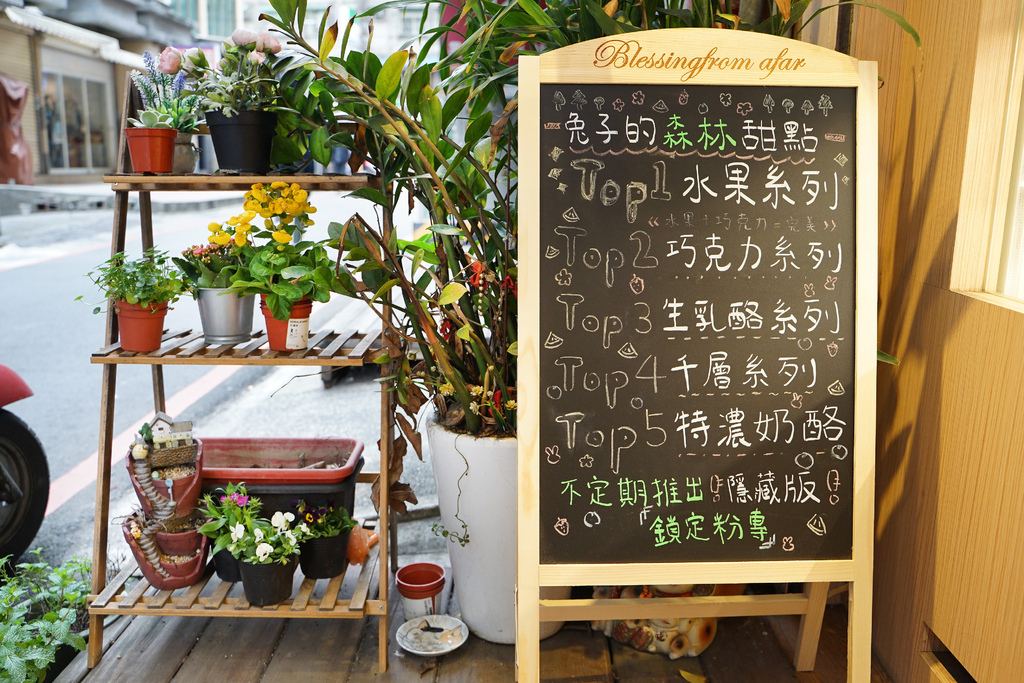 Blessingfrom afar
兔子的森林甜點
Top1 水果系列
《水果+巧克力=完美》
Top2 巧克力系列
Top3 生乳酪系列
Top4 千層系列
Top5 特濃奶酪
不定期推出隱藏版
鎖定粉專